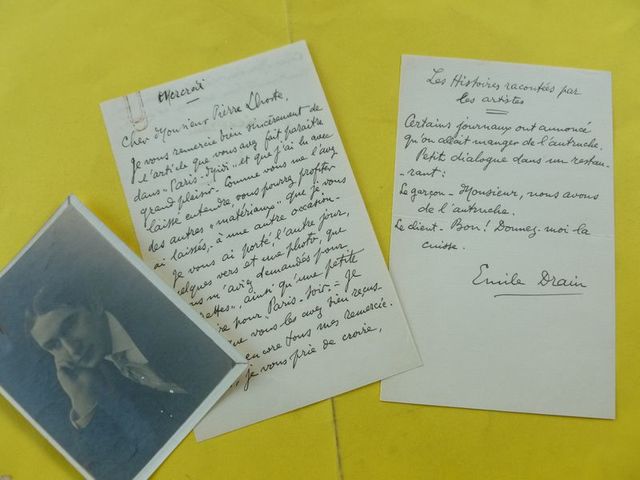 Mercredi
Cher Monsieur Pierre Lhoste,
Je vous remercie bien sincèrement de
l'article que vous avez fait paraître
dans "Paris-Midi" et que j'ai lu avec
grand plaisir. Comme vous me l'avez
laissé entendre, vous pourrez profiter
des autres "matériaux" que je vous
ai laissés, à une autre occasion.
Je vous ai porté, l'autre jour,
quelques vers et une photo, que
m'avez demandés pour
ainsi qu'une petite
pour Paris-Soir. Je
que vous les avez bien reçus
encore tous mes remercie-
je vous prie de croire,
Les Histoires racontées par
les artistes
Certains journaux ont annoncé
qu'on allait manger de l'autruche.
Petit dialogue dans un restau-
-rant:
Le garçon - Monsieur, nous avons
de l'autruche.
Le client - Bon! Donnez-moi la
cuisse.
Emile Drain